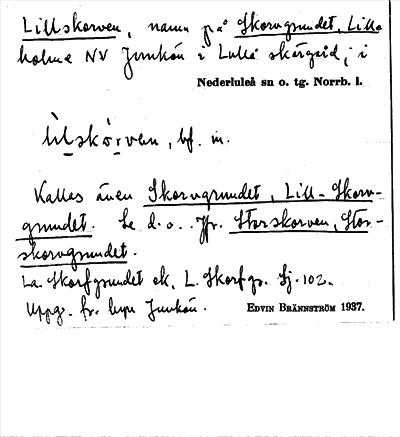 Lillskorven, namn på Skorvgrundet, Lill-
holmen NV Junkön i Luleå skärgård; i
Nederluleå sn o. tg. Norrb. l.
lìlskòrven, bf. m.
Kallas även Skorvgrundet, Lill-Skorv-
grundet. Se d.o. Jfr. Storskorven, Stor-
skorvgrundet.
La. Skorfgrundet ek, L. Skorfgr. Sj. 102.
Uppg. fr. byn Junkön.
EDVIN BRÄNNSTRÖM 1937.